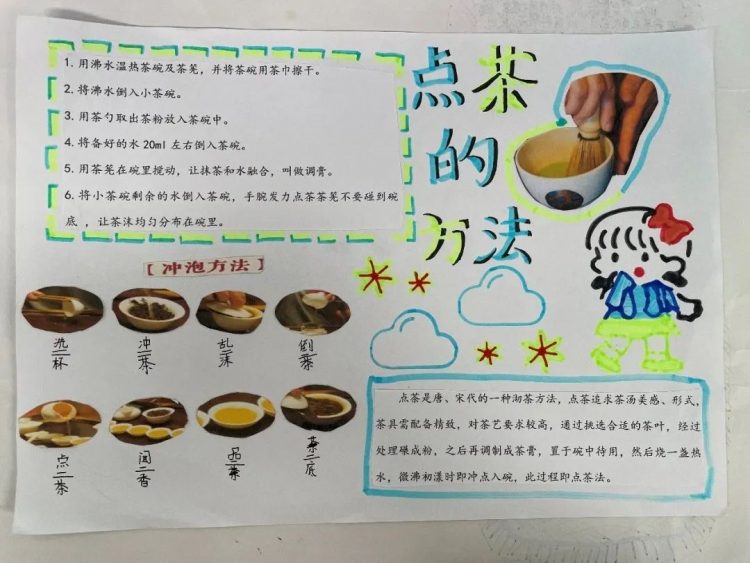 点茶
的
方法
1. 用沸水温热茶碗及茶筅，并将茶碗用茶巾擦干。
2. 将沸水倒入小茶碗。
3. 用茶勺取出茶粉放入茶碗中。
4. 将备好的水 20ml 左右倒入茶碗。
5. 用茶筅在碗里搅动，让抹茶和水融合，叫做调膏。
6. 将小茶碗剩余的水倒入茶碗，手腕发力点茶茶筅不要碰到碗
底 ，让茶沫均匀分布在碗里。
【冲泡方法】
洗杯
冲茶
刮沫
倒茶
点茶
闻香
品茶
茶底
点茶是唐、宋代的一种沏茶方法，点茶追求茶汤美感、形式，
茶具需配备精致，对茶艺要求较高，通过挑选合适的茶叶，经过
处理碾成粉，之后再调制成茶膏，置于碗中待用，然后烧一盏热
水，微沸初漾时即冲点入碗，此过程即点茶法。